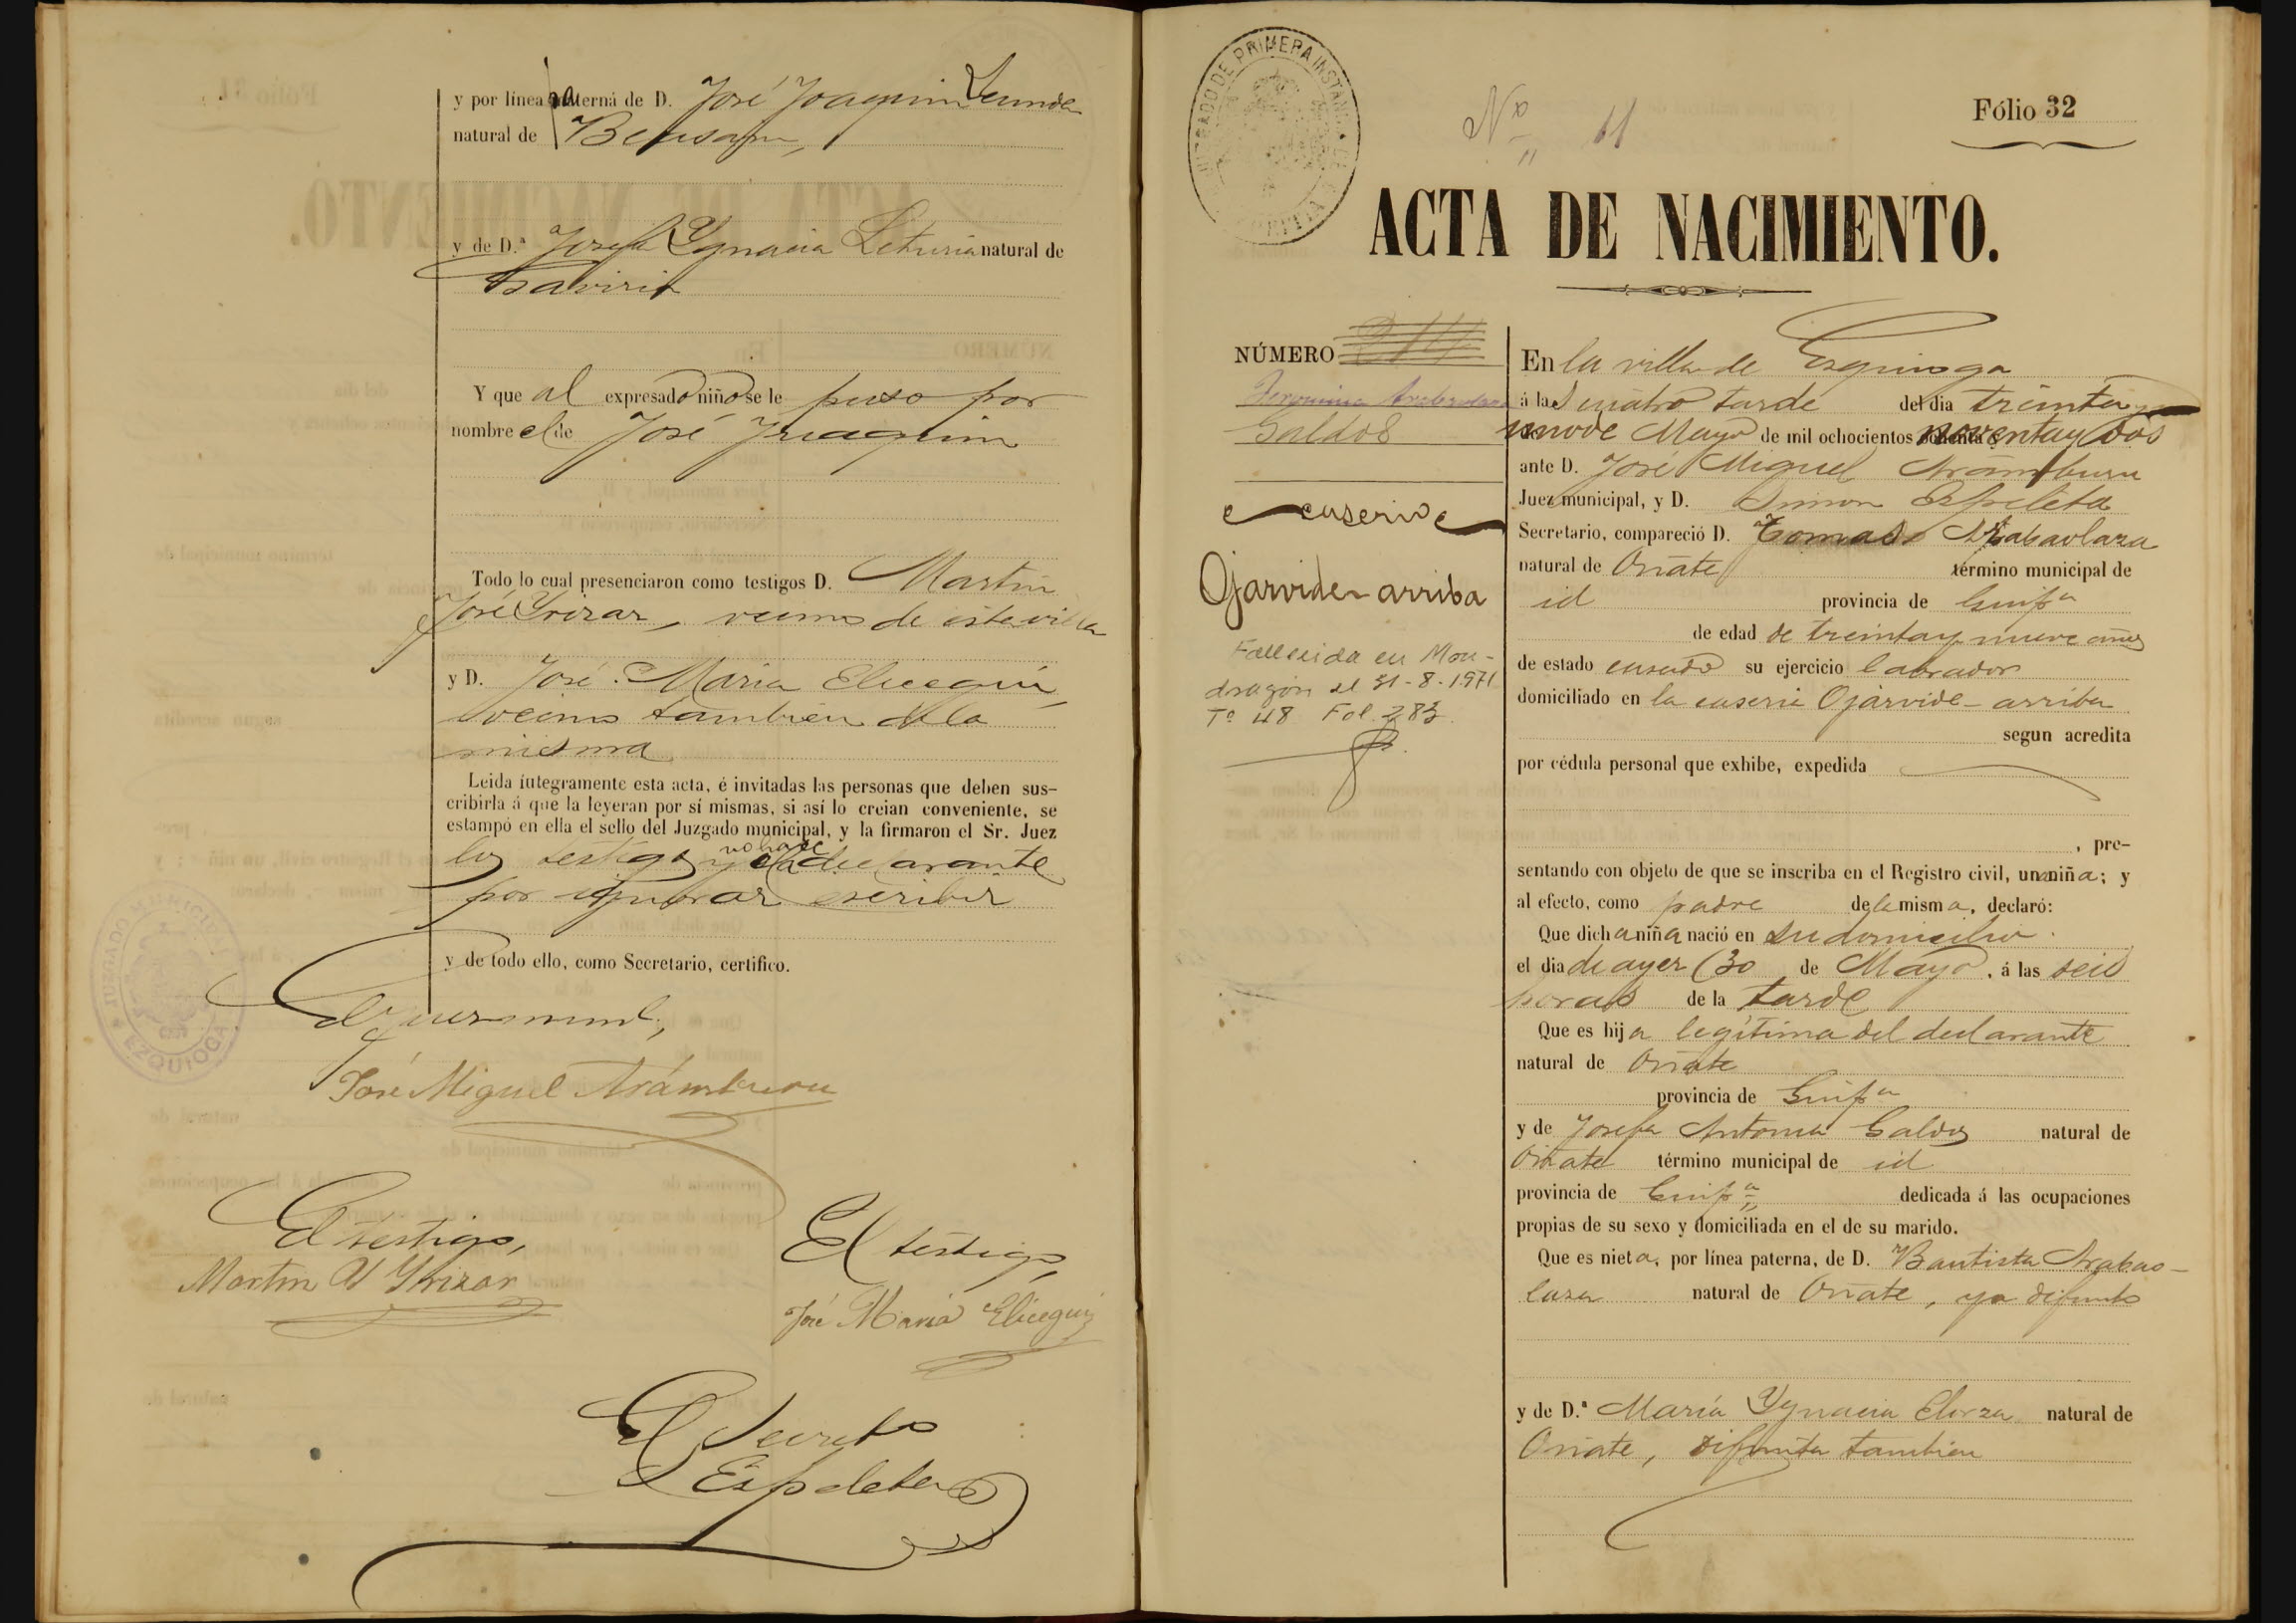 y por línea materna de D. José Joaquin Zunda
natural de Beasain,
y de D.ª Josefa Ygnacia Leturia natural de
Gaviria
Y que al expresado niño se le puso por
nombre el de José Joaquin
Todo lo cual presenciaron como testigos D. Martin
José Yrizar, vecino de esta villa
y D. José Maria Elicegui,
vecino tambien de la
misma
Leida íntegramente esta acta, é invitadas las personas que deben sus-
cribirla á que la leyeran por sí mismas, si así lo creian conveniente, se
estampó en ella el sello del Juzgado municipal, y la firmaron el Sr. Juez
los testigos y no hace el declarante
por ignorar escribir
y de todo ello, como Secretario, certifico.
El Juez munl.,
José Miguel Arámburu
El testigo,
Martin Yrizar
El testigo,
José Maria Elicegui
El Secreto
Espeleta
JUZGADO MUNICIPAL
EZQUIOGA
JUZGADO DE PRIMERA INSTANCIA DE AZPEITIA
Nº 11
Fólio 32
ACTA DE NACIMIENTO.
NÚMERO
Jeronima Arabaolaza
Galdos
caserio
Ojarvide-arriba
Fallecida en Mon-
dragón el 31-8-1971
Tº 48 Fol. 283.
En la villa de Ezquioga
á las cuatro tarde del dia treinta y
uno de Mayo de mil ochocientos noventa y dos
ante D. José Miguel Aramburu
Juez municipal, y D. Simon Espeleta
Secretario, compareció D. Tomas Arabaolaza
natural de Oñate término municipal de
id provincia de Guipª
de edad de treinta y nueve años
de estado casado su ejercicio labrador
domiciliado en la caseria Ojarvide-arriba
segun acredita
por cédula personal que exhibe, expedida
, pre-
sentando con objeto de que se inscriba en el Registro civil, una niña; y
al efecto, como padre de la misma, declaró:
Que dicha niña nació en su domicilio
el dia de ayer (30 de Mayo, á las seis
horas de la tarde
Que es hija legítima del declarante
natural de Oñate
provincia de Guipª
y de Josefa Antonia Galdos natural de
Oñate término municipal de id
provincia de Guipª dedicada á las ocupaciones
propias de su sexo y domiciliada en el de su marido.
Que es nieta, por línea paterna, de D. Bautista Arabao-
laza natural de Oñate, ya difunto
y de D.ª María Ygnacia Elorza natural de
Oñate, difunta tambien